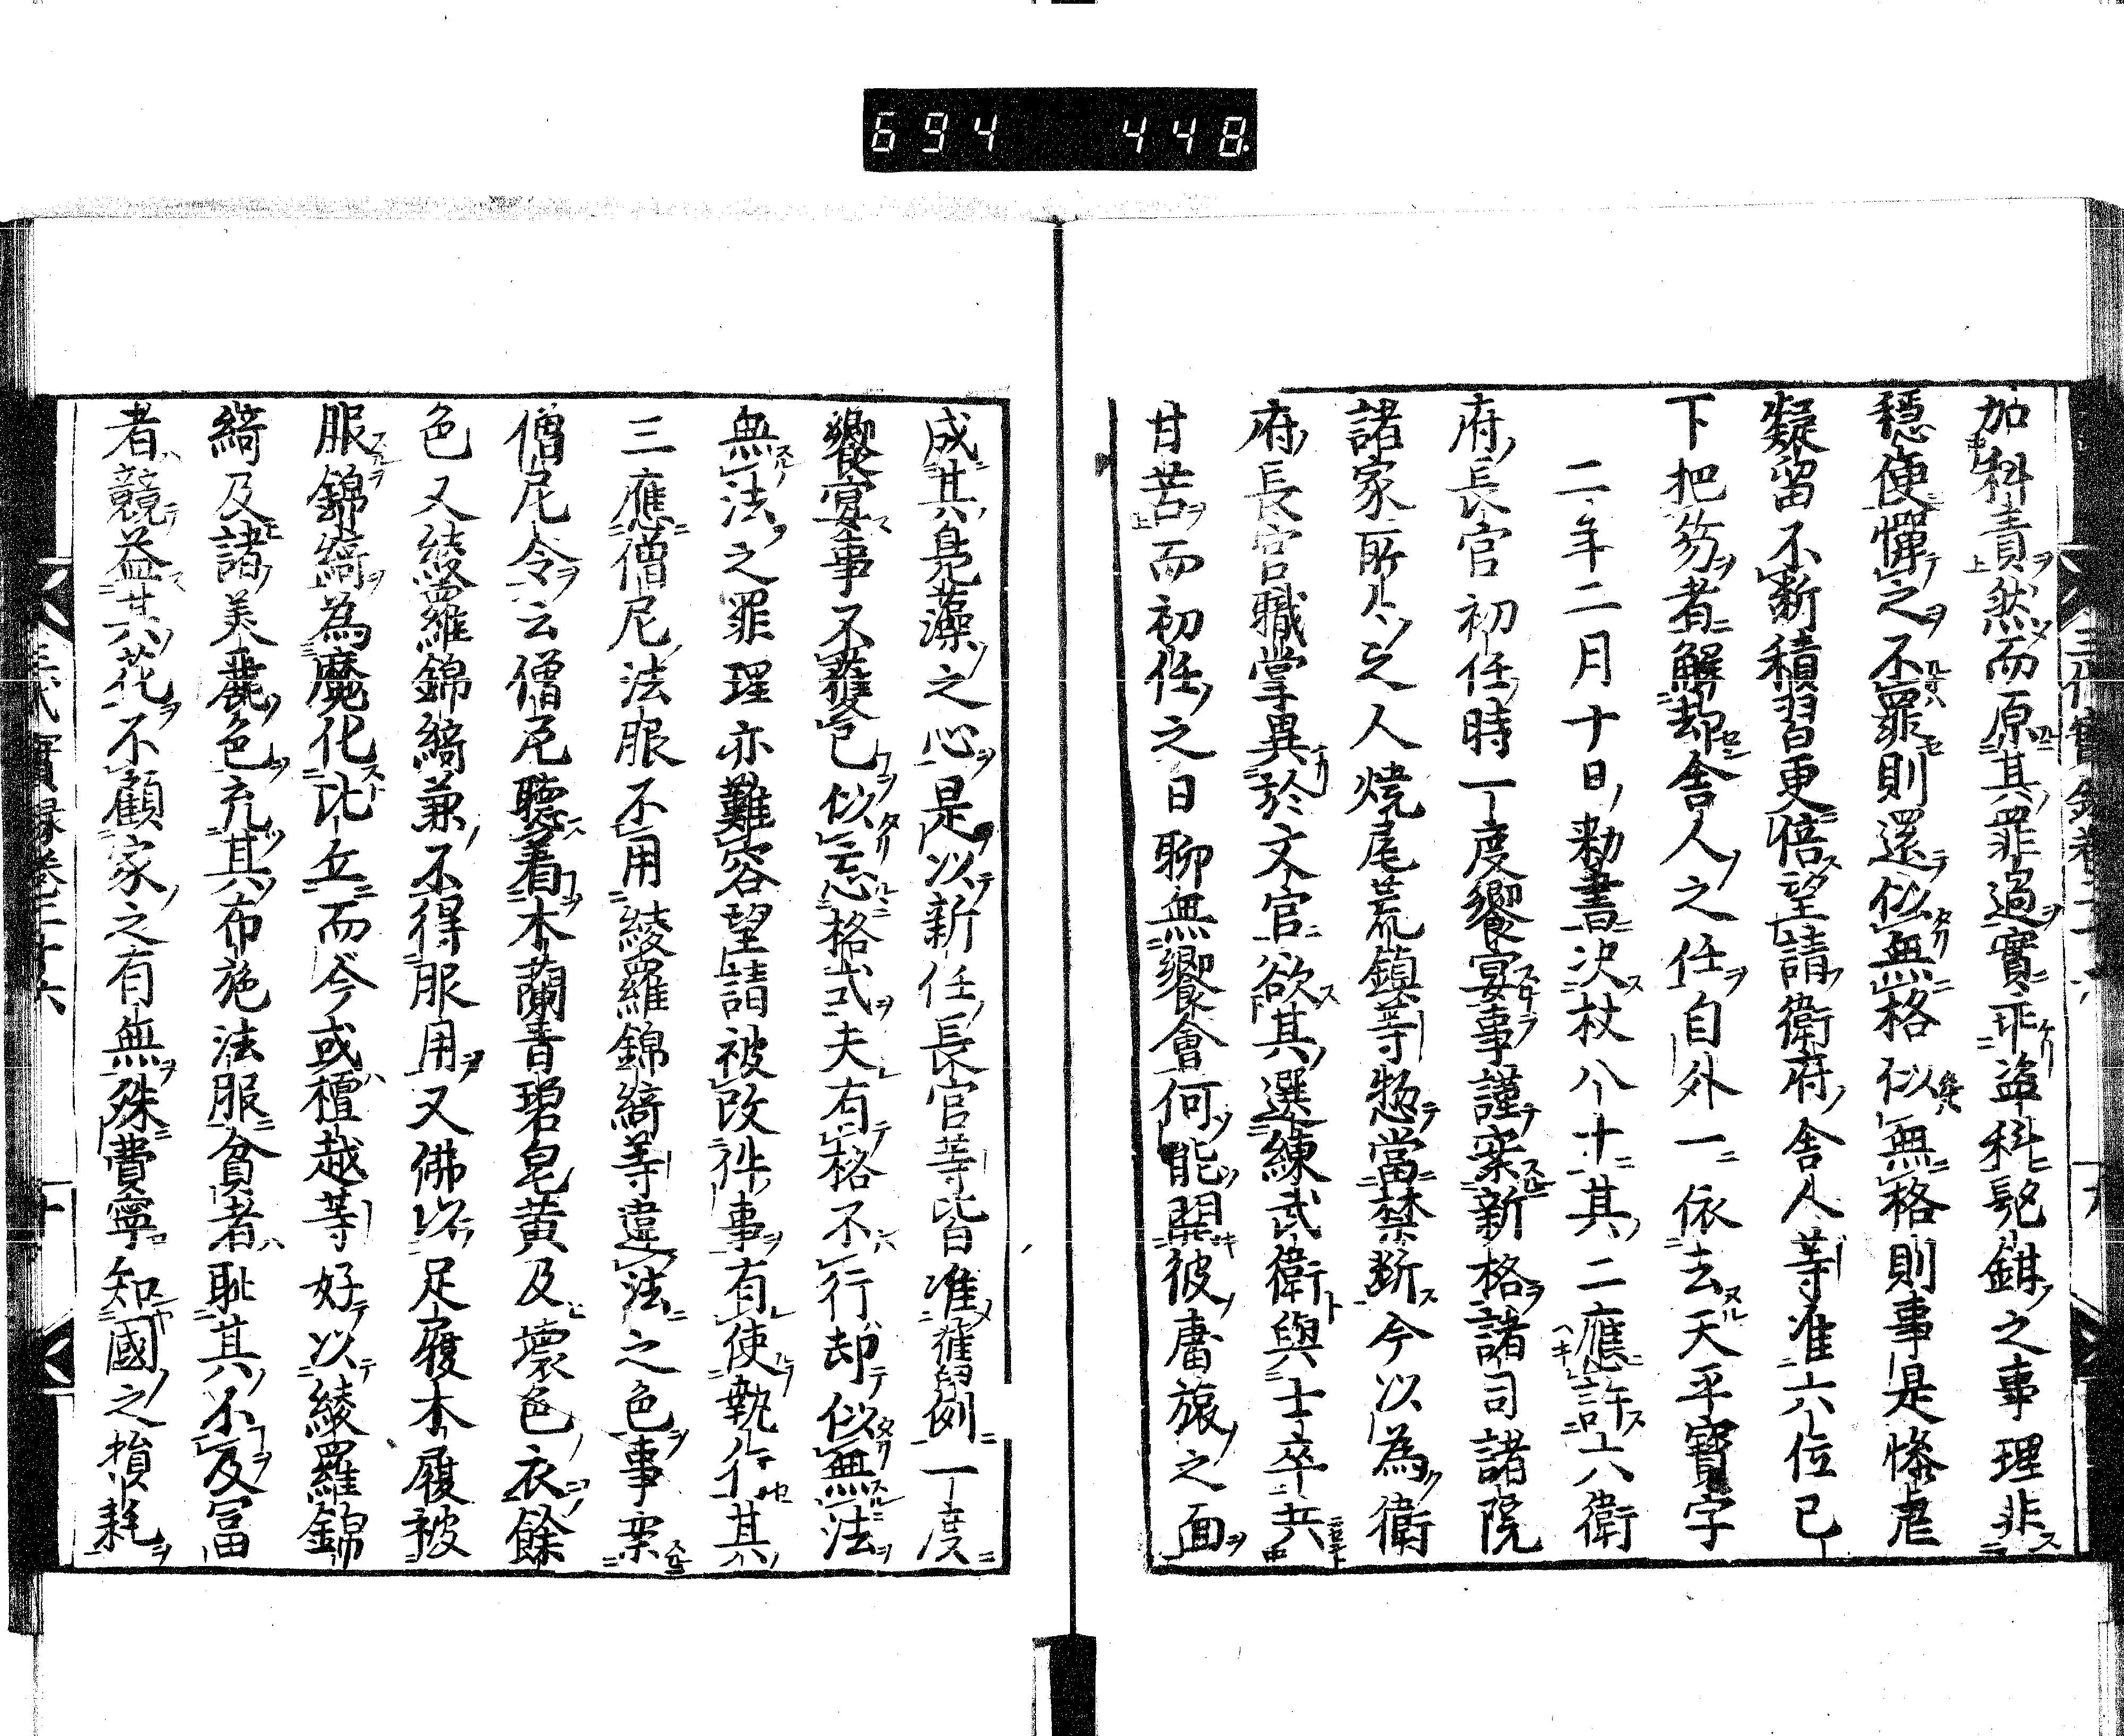 694 448.
加科責然而原其罪過實非盗科髡鉗之事理非
穩便憚之不罪則還似無格似無格則事是慘虐
凝留不斷積習更倍望請衛府舍人等准六位已
下把笏者解却舍人之任自外一依去天平寳字
二年二月十日勅書决杖八十其二應許六衛
府長官初任時一度饗宴事謹案新格諸司諸院
諸家所々之人燒尾荒鎮等惣當禁斷今以為衛
府長官職掌異於文官欲其選練武衛與士卒共
甘苦而初任之日聊無饗會何能開彼麿旅之面
成其鳧藻之心是以新任長官等皆准舊例一度
饗宴事不獲已似忘格式夫有格不行却似無法
無法之罪理亦難容望請被改件事有使執行其
三應僧尼法服不用綾羅錦綺等違法之色事案
僧尼令云僧尼聽着木蘭青碧皂黄及壞色衣餘
色又綾羅錦綺兼不得服用又佛以足履木履被
服錦綺為魔化比丘而今或檀越等好以綾羅錦
綺及諸美麗色充其布施法服貧者耻其不及冨
者競益其花不顧家之有無殊費寧知國之損耗